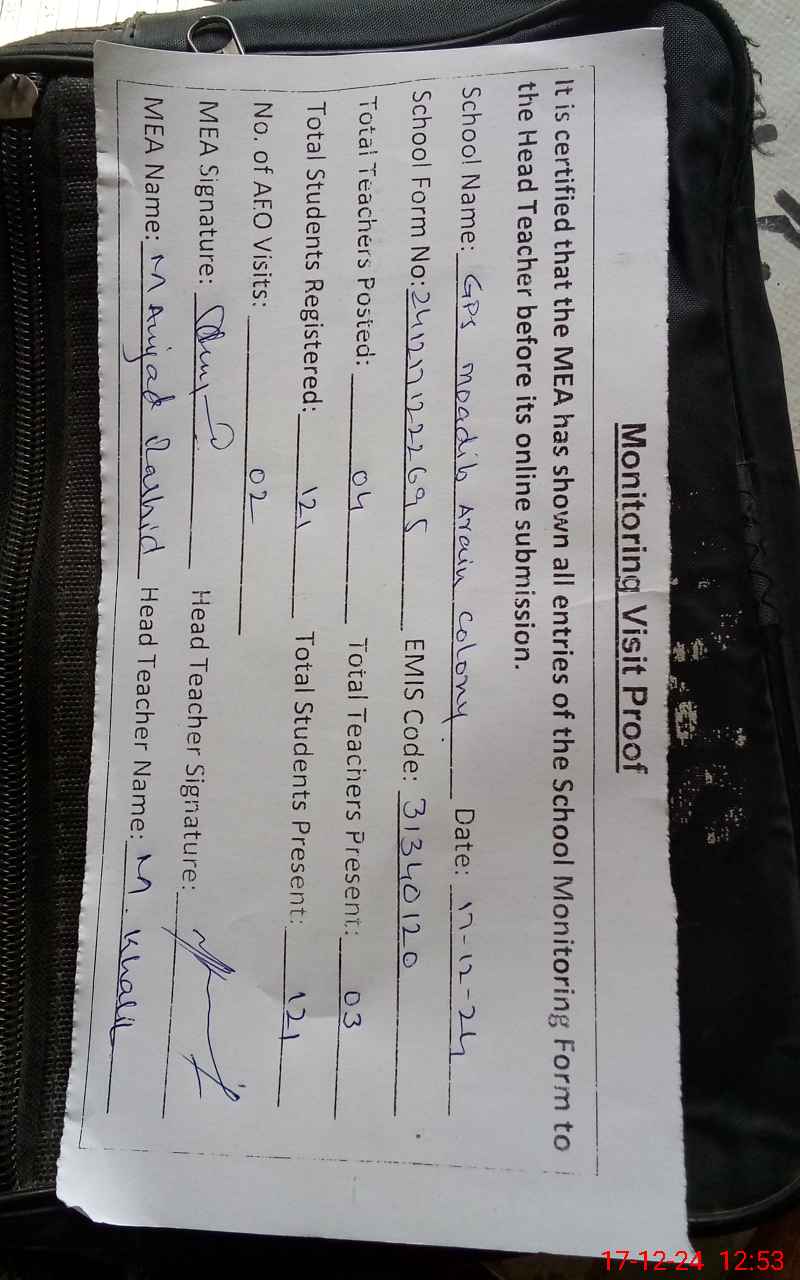 Monitoring Visit Proof
It is certified that the MEA has shown all entries of the School Monitoring Form to
the Head Teacher before its online submission.
School Name: GPS Moadib Arain Colony Date: 17-12-24
School Form No: 241217122695 EMIS Code: 31340120
Total Teachers Posted: 04 Total Teachers Present: 03
Total Students Registered: 121 Total Students Present: 121
No. of AEO Visits: 02
MEA Signature: Head Teacher Signature:
MEA Name: M Amjad Rashid Head Teacher Name: M. Khalil
17-12-24 12:53